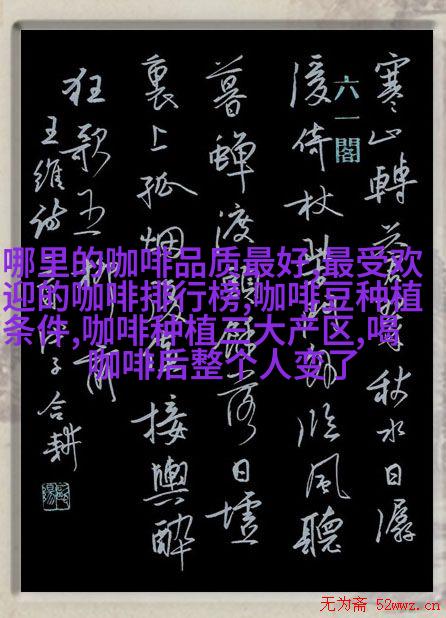 寒山轉秋水日潺
六一閣
湲倚杖临風聽
暮蟬渡頭餘落日墟
裏上孤烟復值接輿醉
狂歌五柳前
王維詩 子合耕
哪里的咖啡品质最好,最受欢
迎的咖啡排行榜,咖啡豆种植
条件,咖啡种植三大产区,喝
咖啡后整个人变了
无为斋 52wwz.cn